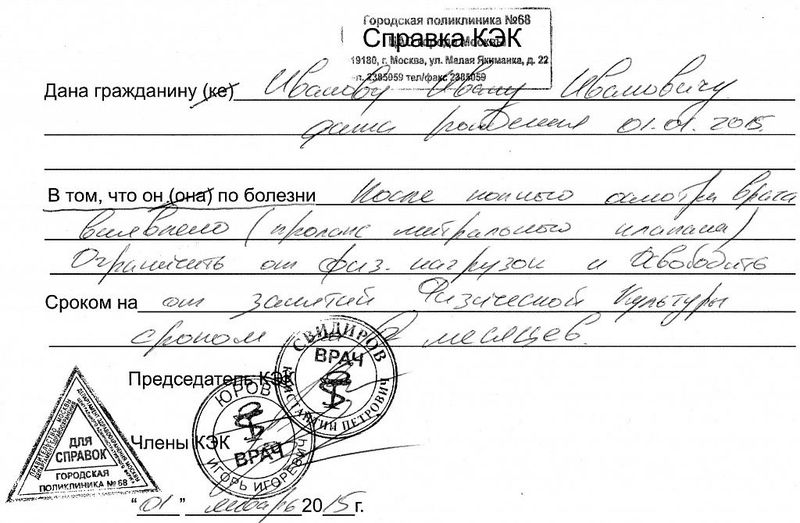 Городская поликлиника №68
ЦАО города Москвы
Справка КЭК
19180, г. Москва, ул. Малая Якиманка, д. 22
2385059 тел/факс 2385059
Дана гражданину (ке) Иванову Ивану Ивановичу
дата рождения 01.01.2015.
В том, что он (она) по болезни После полного осмотра врача
выявлено (пролапс митрального клапана)
Ограничить от физ. нагрузок и Освободить
Сроком на от занятий Физической Культуры
сроком месяцев.
Председатель КЭК
СВИДИРОВ
ВРАЧ
КОНСТАНТИН ПЕТРОВИЧ
Члены КЭК
ЮРОВ
ВРАЧ
ИГОРЬ ИГОРЕВИЧ
ДЛЯ
СПРАВОК
ГОРОДСКАЯ
ПОЛИКЛИНИКА № 68
"01" январь 2015г.